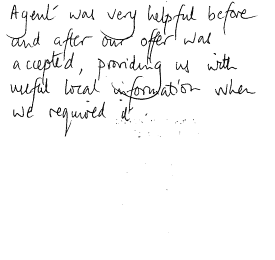 Agent was very helpful before
and after our offer was
accepted, providing us with
useful local information when
we required it.